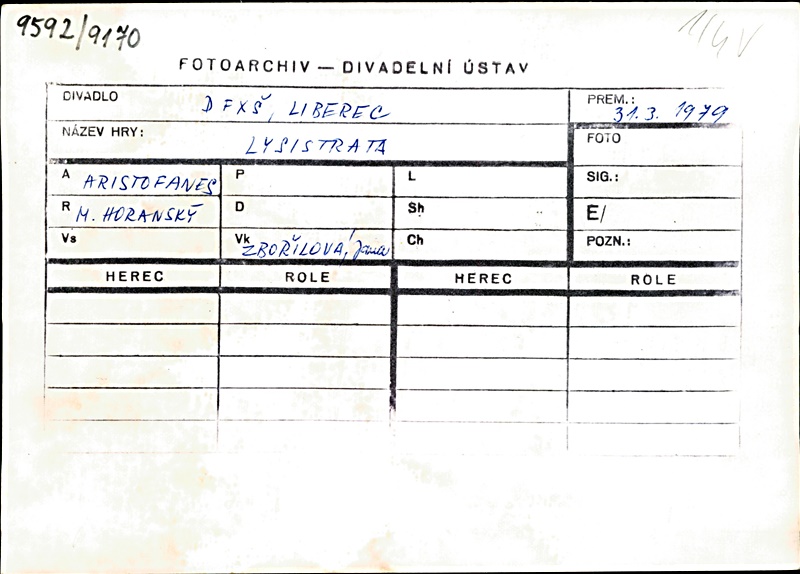 9592/9170
FOTOARCHIV — DIVADELNÍ ÚSTAV
DIVADLO DFXŠ, LIBEREC
PREM.: 31.3. 1979
NÁZEV HRY: LYSISTRATA
FOTO
A ARISTOFANES P L SIG.:
R M. HORANSKÝ D Sh E/
Vs Vk ZBOŘILOVÁ, Jana Ch POZN.:
HEREC ROLE HEREC ROLE